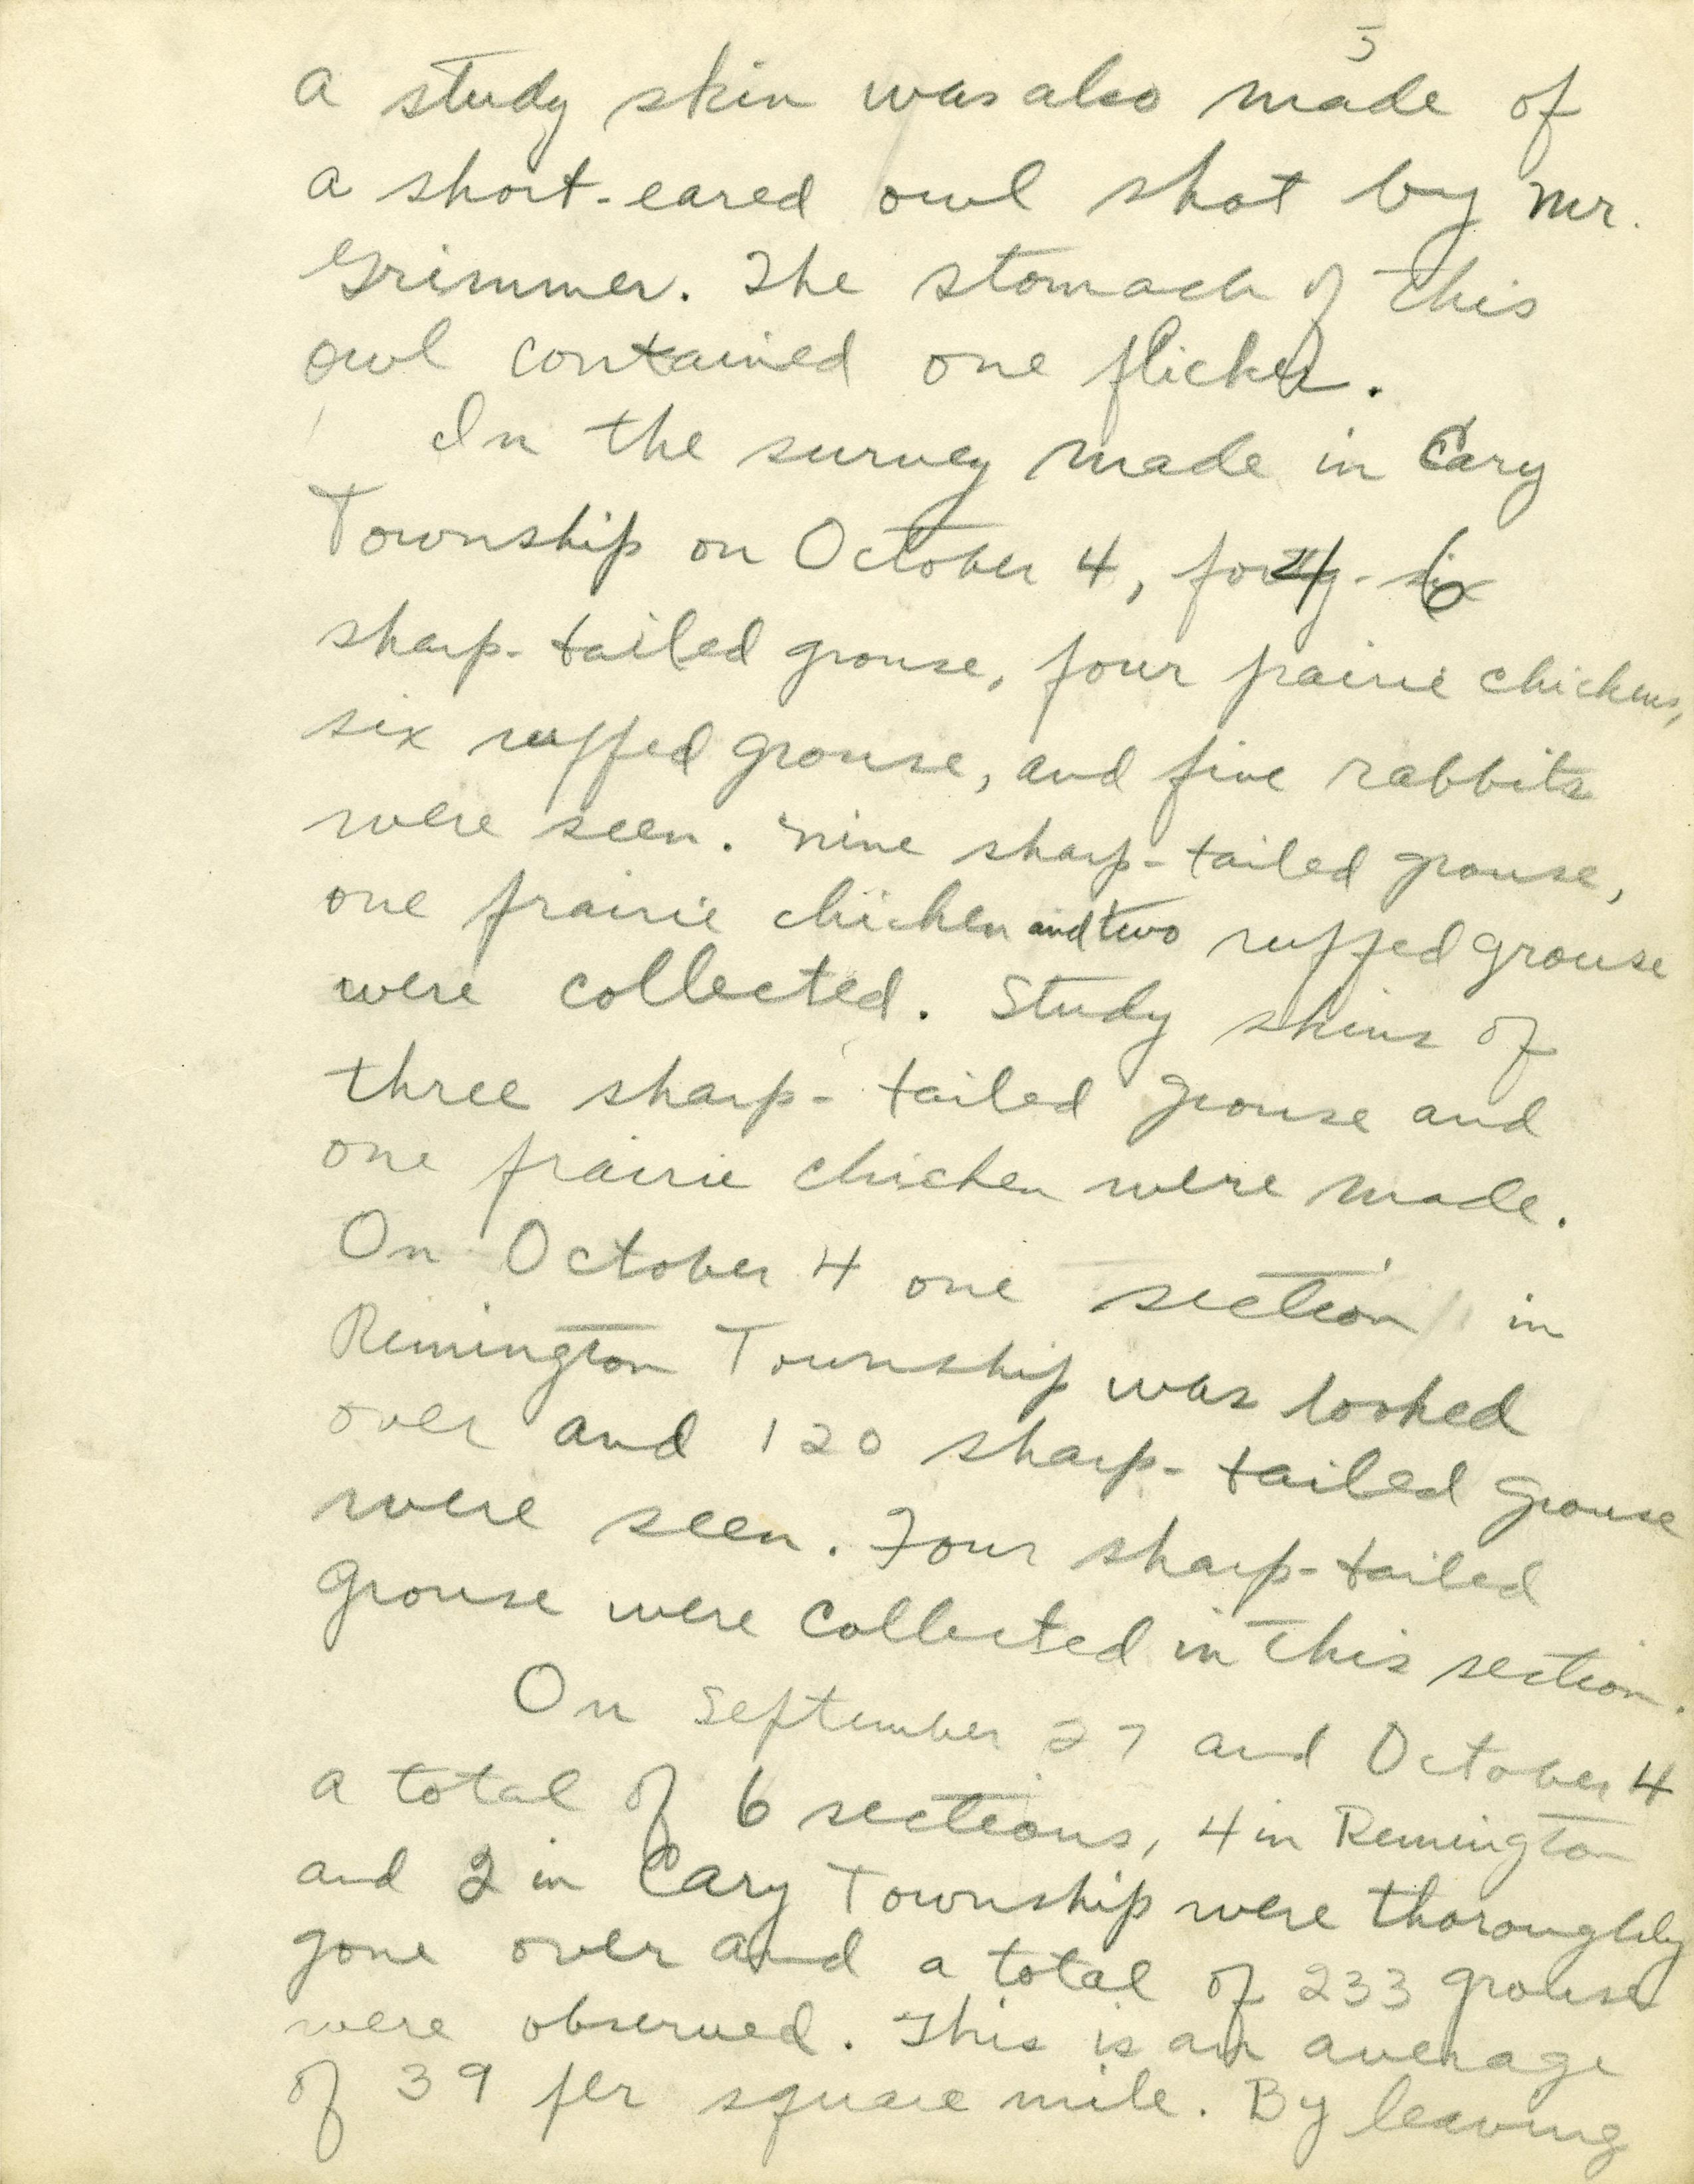 5
a study skin was also made of
a short-eared owl shot by Mr.
Grimmer. The stomach of this
owl contained one flicker.
In the survey made in Cary
Township on October 4, 46
sharp-tailed grouse, four prairie chickens,
six ruffed grouse, and five rabbits
were seen. Nine sharp-tailed grouse,
one prairie chicken and two ruffed grouse
were collected. Study skins of
three sharp-tailed grouse and
one prairie chicken were made.
On October 4 one section in
Remington Township was looked
over and 120 sharp-tailed grouse
were seen. Four sharp-tailed
grouse were collected in this section.
On September 27 and October 4
a total of 6 sections, 4 in Remington
and 2 in Cary Township were thoroughly
gone over and a total of 233 grouse
were observed. This is an average
of 39 per square mile. By leaving